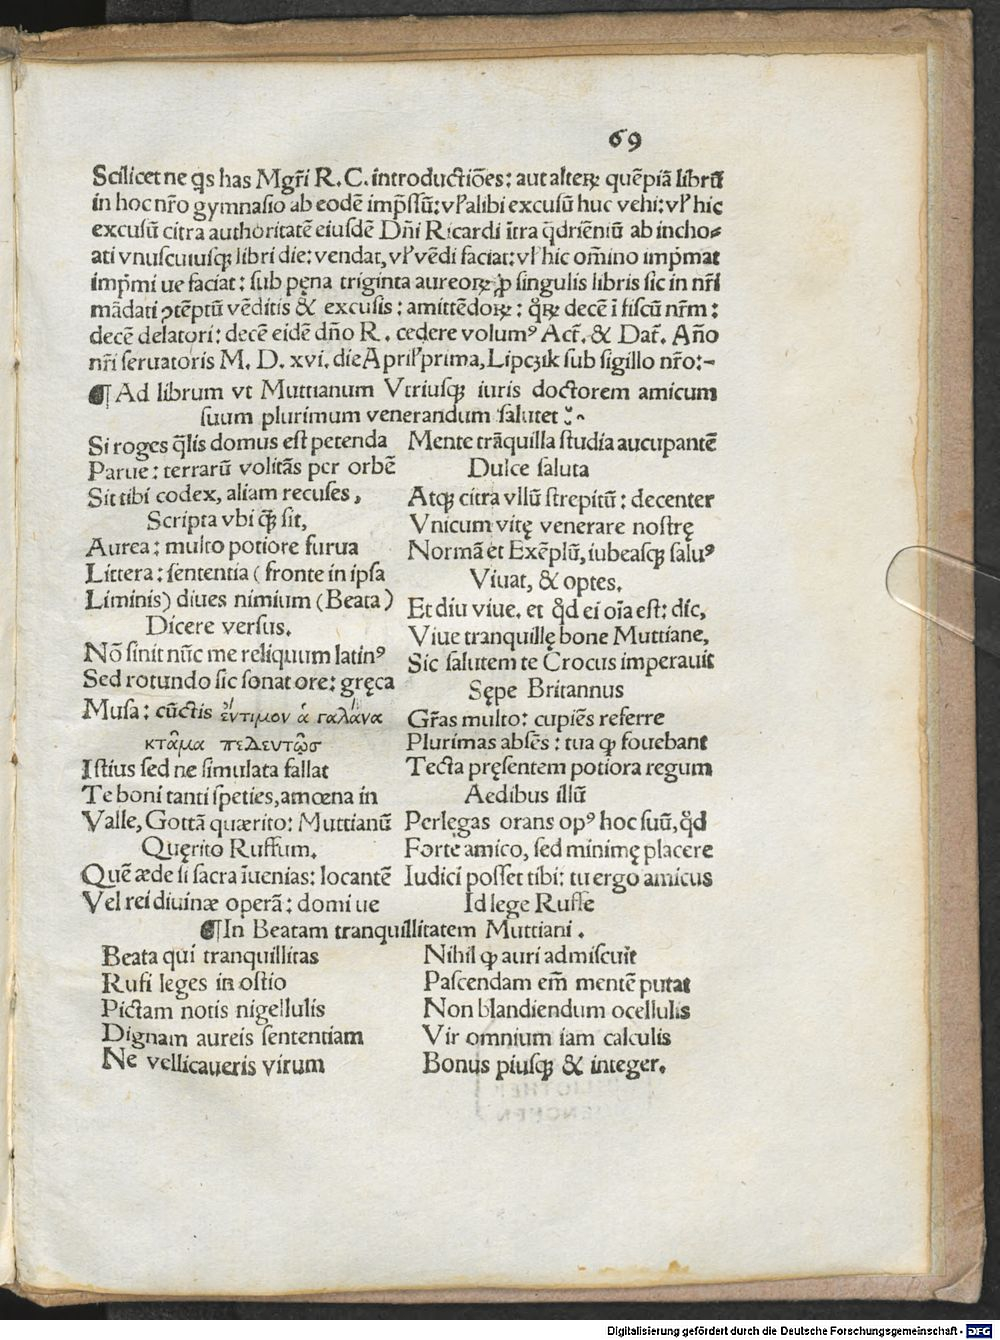 69
Scilicet ne qͥs has Mgr̃i R. C. introductiões: aut alteꝝ quẽpiã librũ
in hoc nr̃o gymnasio ab eodẽ imp̃ssũ: vꝉ alibi excusũ huc vehi: vꝉ hic
excusũ citra authoritatẽ eiusdẽ Dñi Ricardi ĩtra q̃driẽniũ ab incho⸗
ati vnuscuiusqꝫ libri die: vendat, vꝉ vẽdi faciat: vꝉ hic om̃ino imp̃mat
imp̃mi ue faciat: sub pęna triginta aureoꝝ ꝓ singulis libris sic in nr̃i
mãdati ꝯtẽptũ vẽditis & excusis: amittẽdoꝝ: q̃ꝝ decẽ ĩ fiscũ nr̃m:
decẽ delatori: decẽ eidẽ dño R. cedere volumꝰ Act̃. & Dat̃. Año
nr̃i seruatoris M. D. xvi. die Aprilꝭ prima, Lipczik sub sigillo nr̃o:-
¶ Ad librum vt Muttianum Vtriusqꝫ iuris doctorem amicum
suum plurimum venerandum salutet
Si roges q̃lis domus est petenda
Parue: terrarũ volitãs per orbẽ
Sit tibi codex, aliam recuses,
Scripta vbi q̃ sit,
Aurea: multo potiore furua
Littera: sententia ( fronte in ipsa
Liminis) diues nimium (Beata)
Dicere versus.
Nõ sinit nũc me reliquum latinꝰ
Sed rotundo sic sonat ore: gręca
Musa: cũctis ἔντιμον ἁ γαλάνα
κτᾶμα πελευτῶσ
Istius sed ne simulata fallat
Te boni tanti speties, amœna in
Valle, Gottã quærito: Muttianũ
Quęrito Ruffum.
Quẽ æde si sacra ĩuenias: locantẽ
Vel rei diuinæ operã: domi ue
Mente trãquilla studia aucupantẽ
Dulce saluta
Atqꝫ citra vllũ strepitũ: decenter
Vnicum vitę venerare nostrę
Normã et Exẽplũ, iubeasqꝫ saluꝰ
Viuat, & optes.
Et diu viue. et q̊d ei oĩa est: dĩc,
Viue tranquillę bone Muttiane,
Sic salutem te Crocus imperauit
Sępe Britannus
Gr̃as multo: cupiẽs referre
Plurimas absẽs: tua ꝙ fouebant
Tecta pręsentem potiora regum
Aedibus illũ
Perlegas orans opꝰ hoc suũ, q̊d
Forte amico, sed minimę placere
Iudici posset tibi: tu ergo amicus
Id lege Ruffe
¶ In Beatam tranquillitatem Muttiani .
Beata qui tranquillitas
Rufi leges in ostio
Pictam notis nigellulis
Dignam aureis sententiam
Ne vellicaueris virum
Nihil ꝙ auri admiscuit
Pascendam em̃ mentẽ putat
Non blandiendum ocellulis
Vir omnium iam calculis
Bonus piusqꝫ & integer.
Digitalisierung gefördert durch die Deutsche Forschungsgemeinschaft - DFG